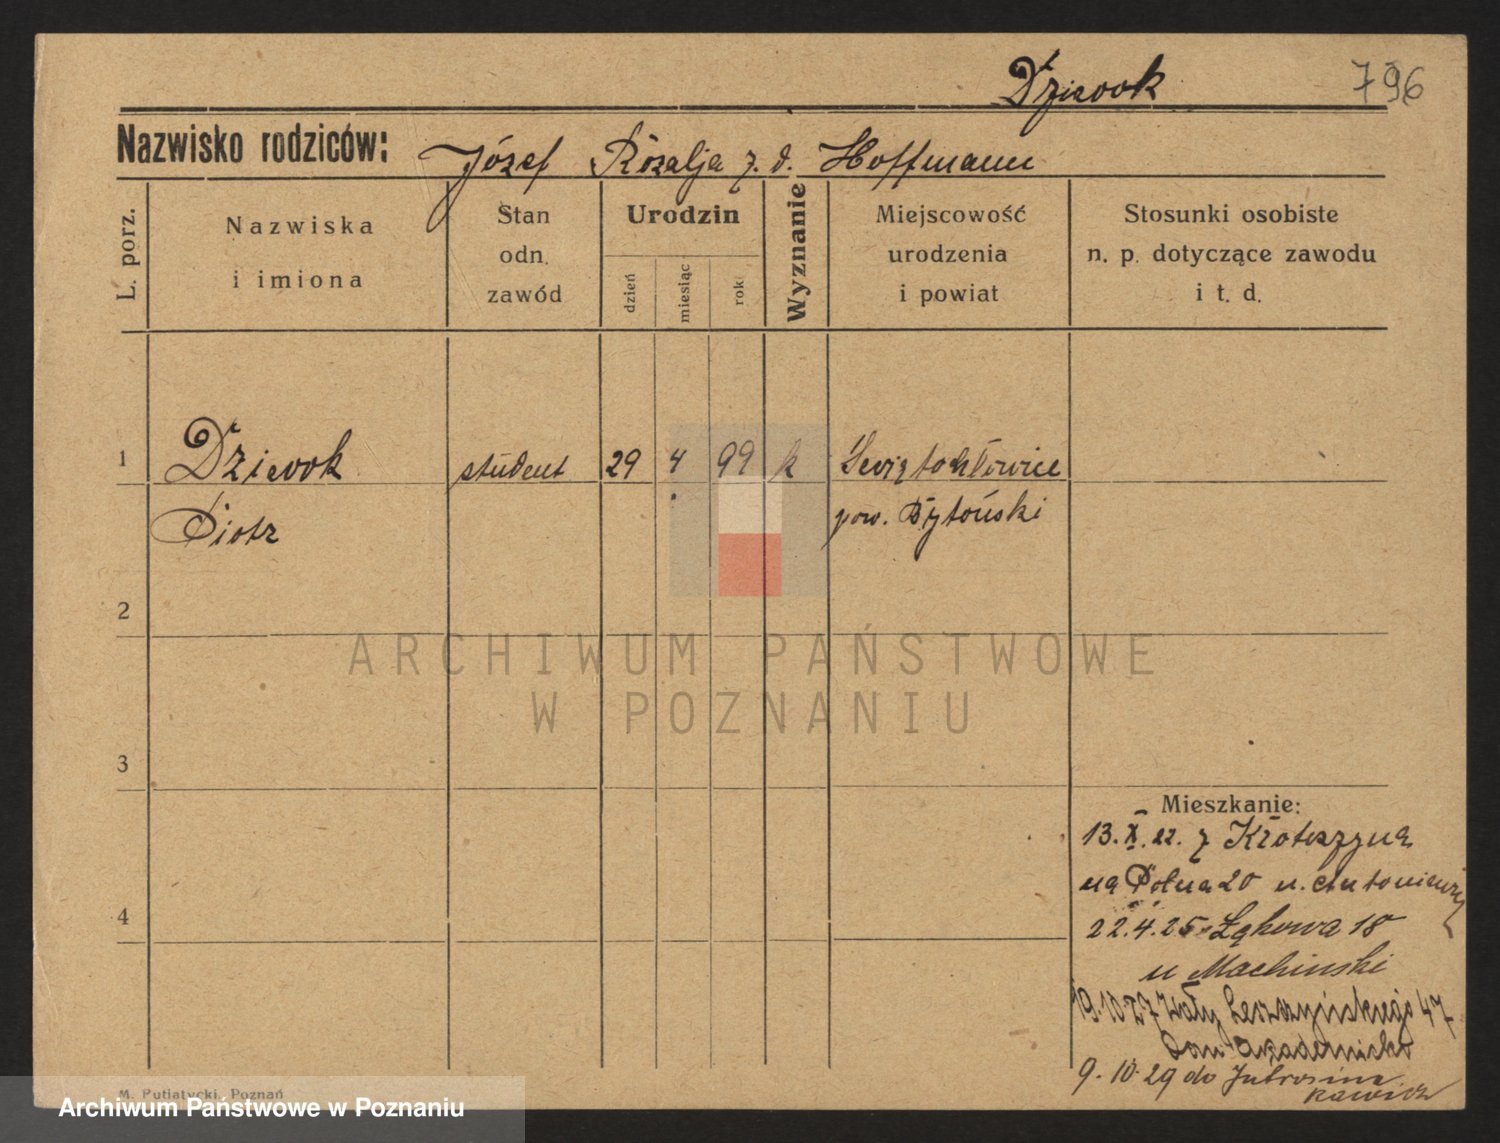 Dziewok
796
Nazwisko rodziców: Józef Rozalja z. d. Hoffmann
L. porz.
Nazwiska
i imiona
Stan
odn.
zawód
Urodzin
dzień
miesiąc
rok
Wyznanie
Miejscowość
urodzenia
i powiat
Stosunki osobiste
n. p. dotyczące zawodu
i t. d.
1 Dziewok student 29 4 99 k Świętochłowice
Piotr pow. Bytoński
2
ARCHIWUM PAŃSTWOWE
W POZNANIU
3
Mieszkanie:
13.X.22. z Krotoszyna
na Polna 20 u. Antoniewicz
4
22.4.25 Łąkowa 18
u Machinski
19.10.27 Wały Leszczyńskiego 47
Dom Akademicki
9.10.29 do Jutrosina
Rawicz
M. Putiatycki, Poznań
Archiwum Państwowe w Poznaniu